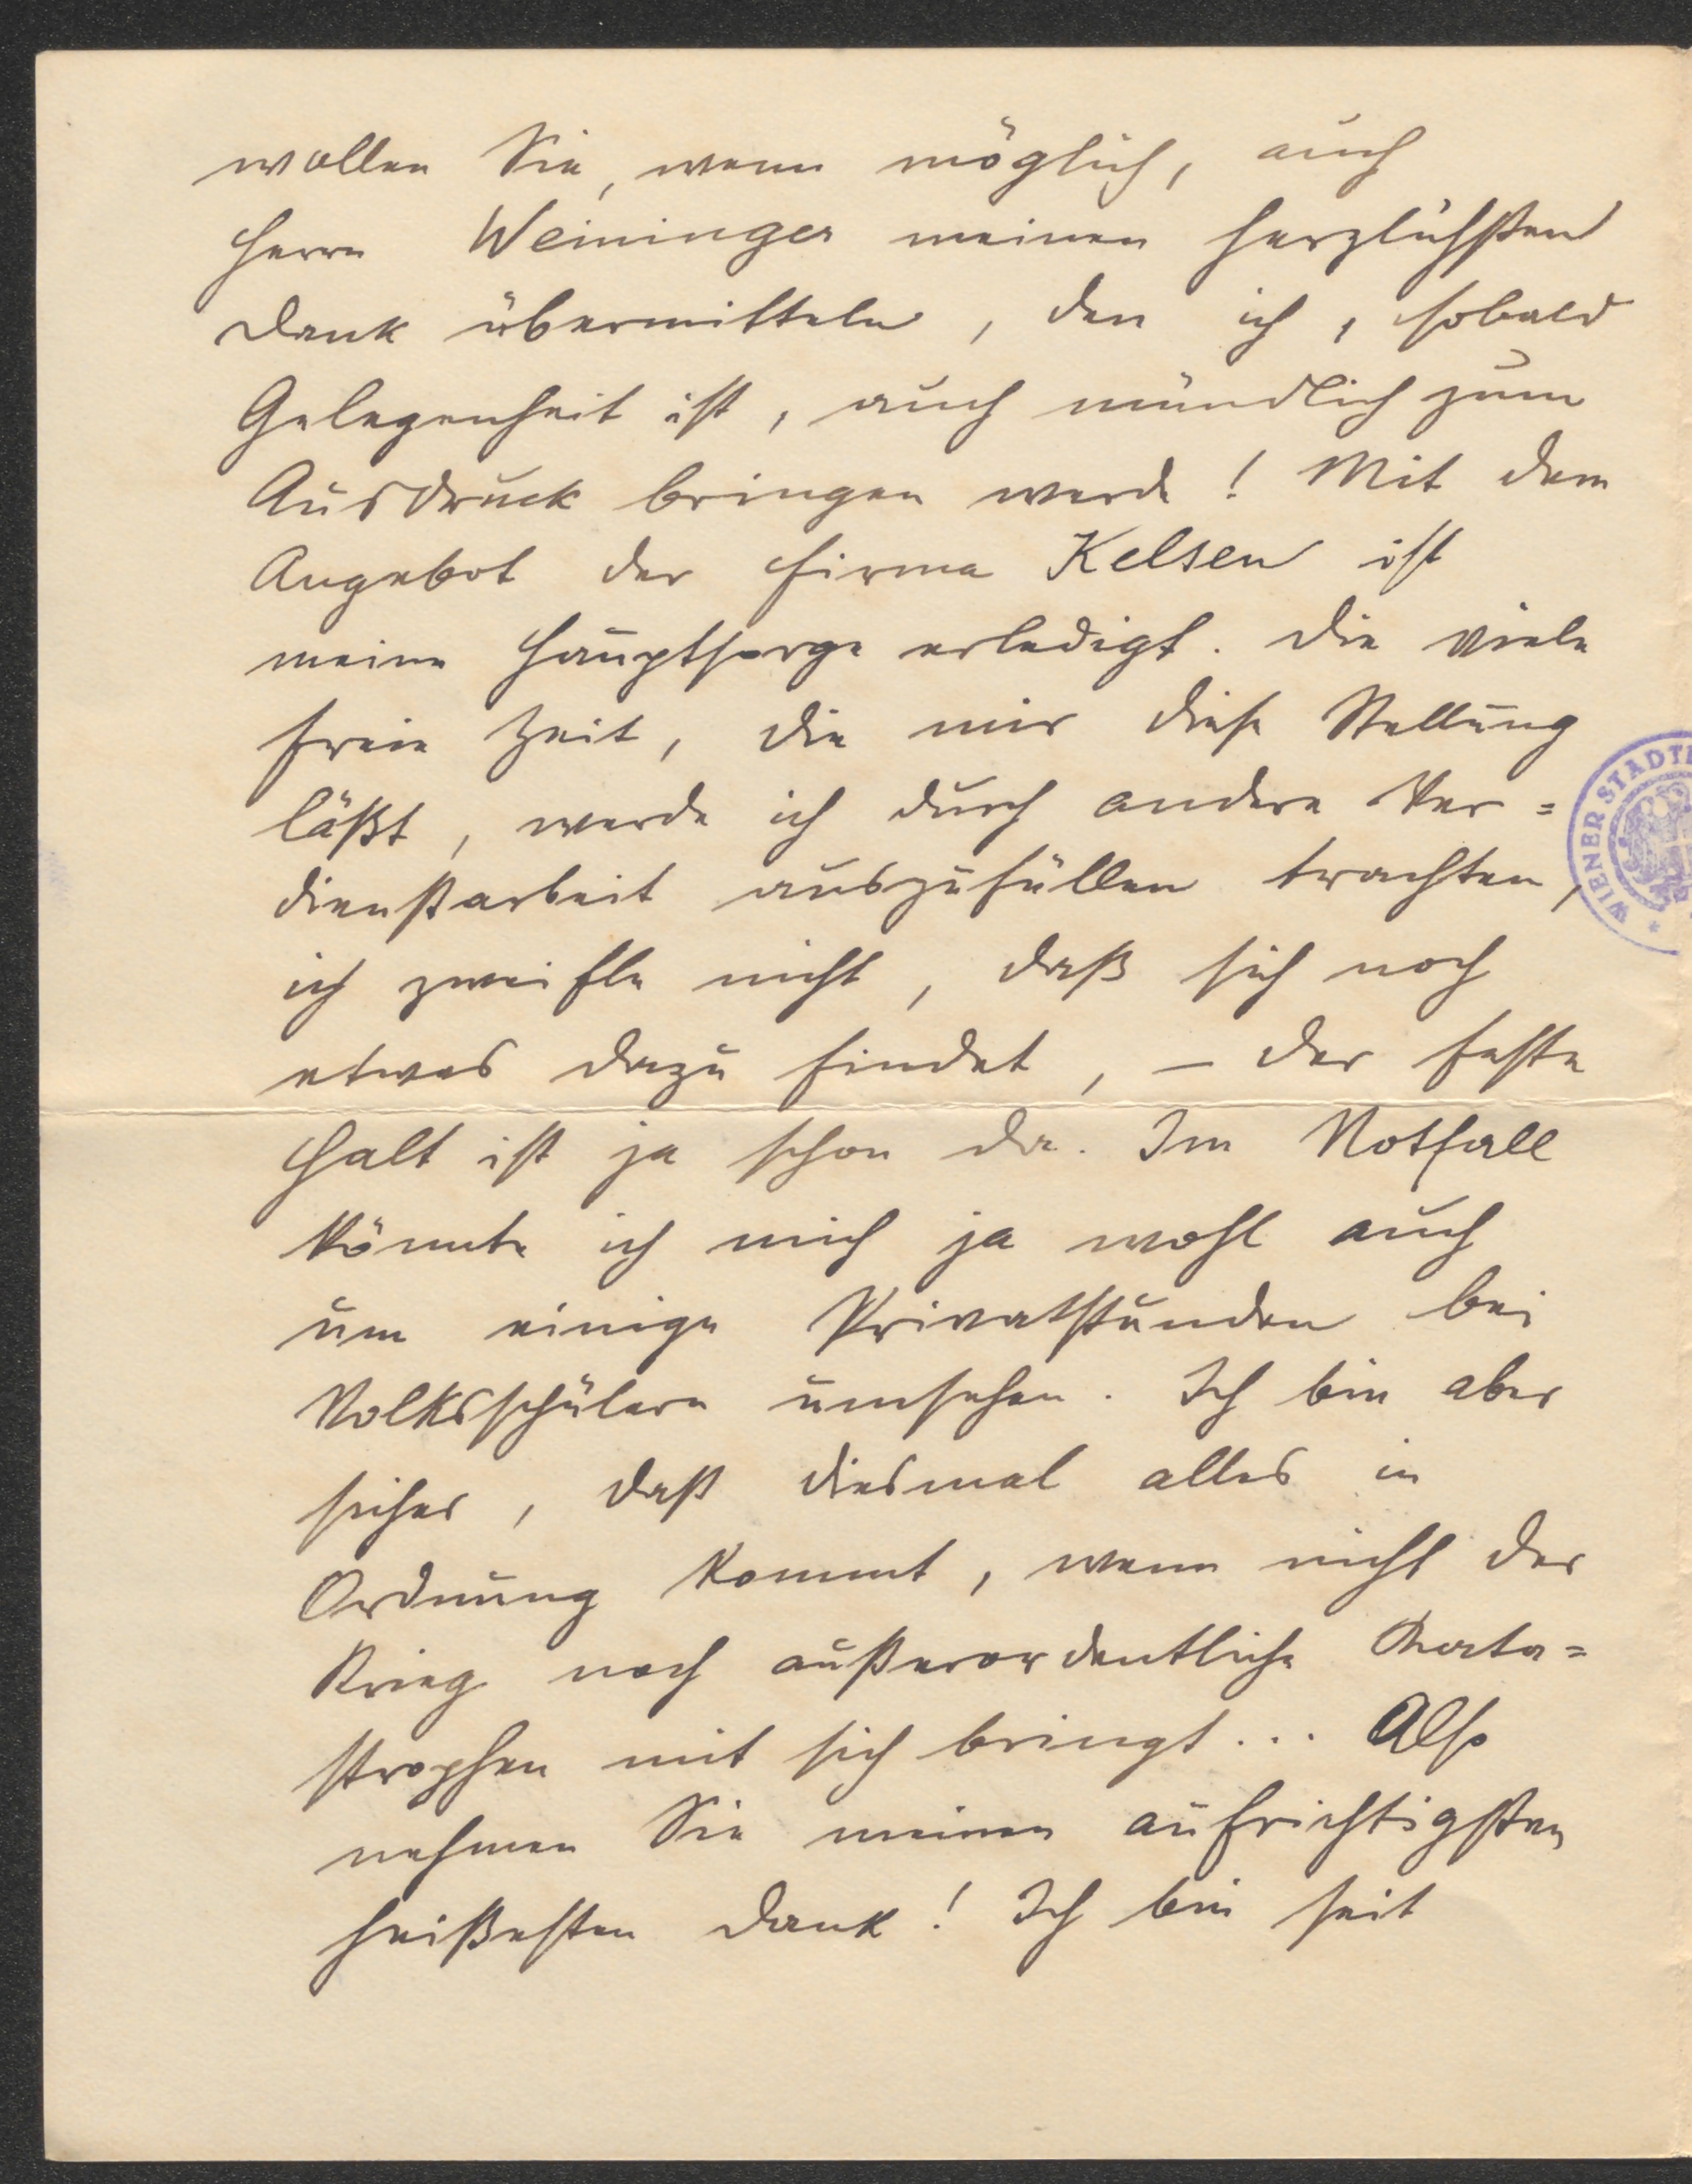 wollen Sie, wenn möglich, auch
Herrn Weininger meinen herzlichsten
Dank übermitteln, den ich, sobald
Gelegenheit ist, auch mündlich zum
Ausdruck bringen werde! Mit dem
Angebot der Firma Kelsen ist
meine Hauptsorge erledigt. Die viele
freie Zeit, die mir diese Stellung
läßt, werde ich durch andere Ver=
dienstarbeit auszufüllen trachten,
ich zweifle nicht, daß sich noch
etwas dazu findet, – der feste
Halt ist ja schon da. Im Notfall
könnte ich mich ja wohl auch
um einige Privatstunden bei
Volksschülern umsehen. Ich bin aber
sicher, daß diesmal alles in
Ordnung kommt, wenn nicht der
Krieg noch außerordentliche Kata=
strophen mit sich bringt... Also
nehmen Sie meinen aufrichtigsten
heißesten Dank! Ich bin seit
WIENER STADT